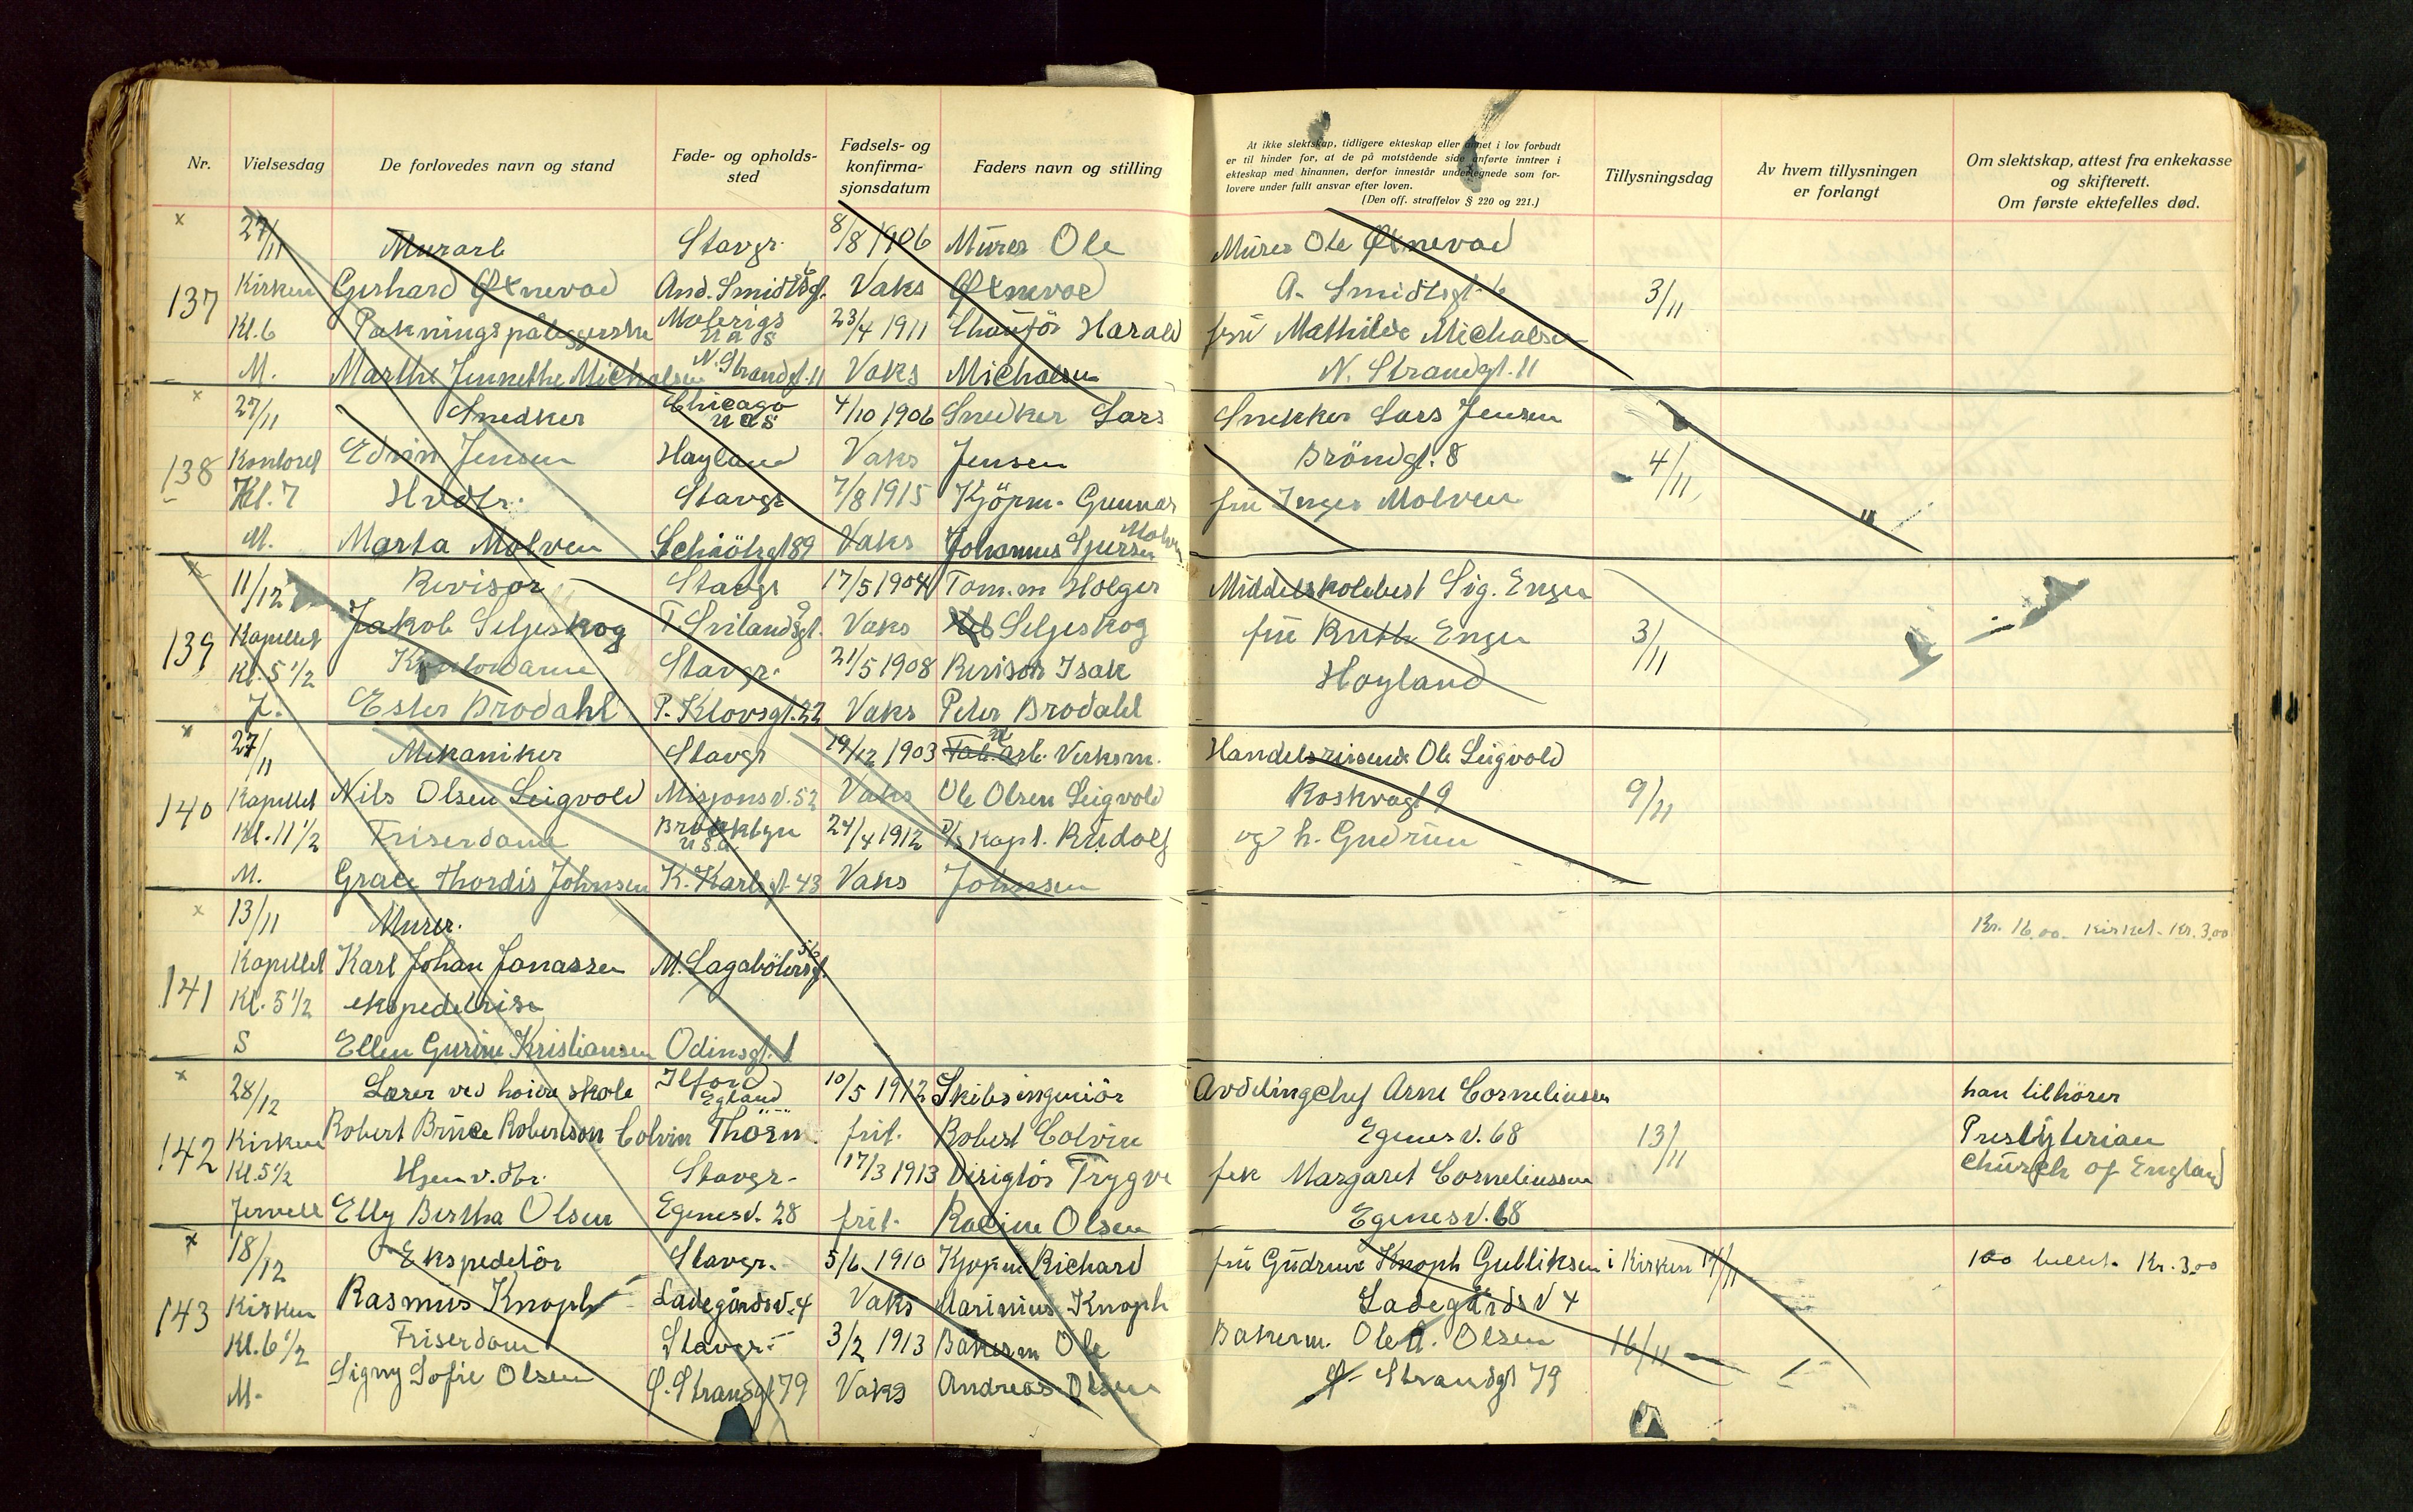 Nr. Vielsesdag De forlovedes navn og stand Føde- og opholds- sted Fødsels- og konfirma- sjonsdatum Faders navn og stilling
At ikke slektskap, tidligere ekteskap eller annet i lov forbudt
er til hinder for, at de på motstående side anførte inntrer i
ekteskap med hinannen, derfor innestår undertegnede som for-
lovere under fullt ansvar efter loven.
(Den off. straffelov § 220 og 221.)
Tillysningsdag
Av hvem tillysningen
er forlangt
Om slektskap, attest fra enkekasse
og skifterett.
Om første ektefelles død.
x 27/11 Murarb Stavgr. 8/8 1906 Murer Ole Murer Ole Øxnevad
137 Kirken Gerhard Øxnevad And. Smidtsgt. 6 Vaks Øxnevad A. Smidtsgt. 6 3/11
Kl. 6 Pakningspåleggerske U a S 23/4 1911 Chaufør Harald fru Mathilde Michalsen
M. Marthe Jennethe Michalsen N. Strandgt. 11 Vaks Michalsen N. Strandgt. 11
x 27/11 Snedker Chicago U a S 4/10 1906 Snedker Lars Snekker Lars Jensen
138 Kontoret Edvin Jensen Høyland Vaks Jensen Brøndgt. 8 4/11
Kl. 7 Husbr. Stavgr 7/8 1915 Kjöpm. Gunnar fru Inger Molven
M. Marta Molven gt 89 Vaks Johannes Molven
x 11/12 Revisor Stavgr 17/5 1904 Tom.m Holger Middelskolebest Sig. Enge
139 Kapellet Jakob Seljeskog T. Svilandsgt. 9 Vaks Seljeskog fru Ruth Enge 3/11
Kl. 5 1/2 Kontordame Stavgr. 21/5 1908 Revisor Isak Høyland
J. Ester Brodahl P. Klowsgt. 22 Vaks Peter Brodahl
x 27/11 Mekaniker Stavgr 19/12 1903 Fab. arb. Verksm. Handelsreisende Ole Leigvold
140 Kapellet Nils Olsen Leigvold Misjonsv. 52 Vaks Ole Olsen Leigvold Roskvagt 9 9/11
Kl. 11 1/2 Friserdame Brooklyn U S a 24/4 1912 D/S Kapt. Rudolf og h. Gudrun
M. Grace Thordis Johnsen K. Karlsgt. 43 Vaks Johnsen
x 13/11 Murer. Kr. 16.00. Kirket. Kr. 3.00
Kapellet Karl Johan Jonassen M. Lagabötersgt.
141 Kl. 5 1/2 ekspeditrise
S Ellen Gurine Kristiansen Odinsgt. 1
x 28/12 Lærer ved hoiere skole Ilford Egland 10/5 1912 Skibsingeniör Avdelingchef Arne Corneliussen han tilhörer
142 Kirken Robert Bruce Robertson Colvin frit. Robert Colvin Egenesv. 68 13/11 Presbyterian
Kl. 5 1/2 Hjemv. dtr. Stavgr. 17/3 1913 Trygve frk Margaret Corneliussen Church of England
Jervell Elly Bertha Olsen Egenesv. 28 frit. Olsen Egenesv. 68
x 18/12 Ekspeditör Stavgr. 5/6 1910 Kjøpm Richard fru Gudrun Knoph Gulliksen i Kirken 14/11 100 billet. Kr. 3.00
143 Kirken Rasmus Knoph Ladegårdsv. 4 Vaks Marinius Knoph Ladegårdsv 4
Kl. 6 1/2 Friserdam Stavgr. 3/2 1913 Bakerm Ole Bakerm. Ole A. Olsen 16/11
M. Signy Sofie Olsen Ø. Strandgt 79 Vaks Andreas Olsen Ø. Strandgt 79